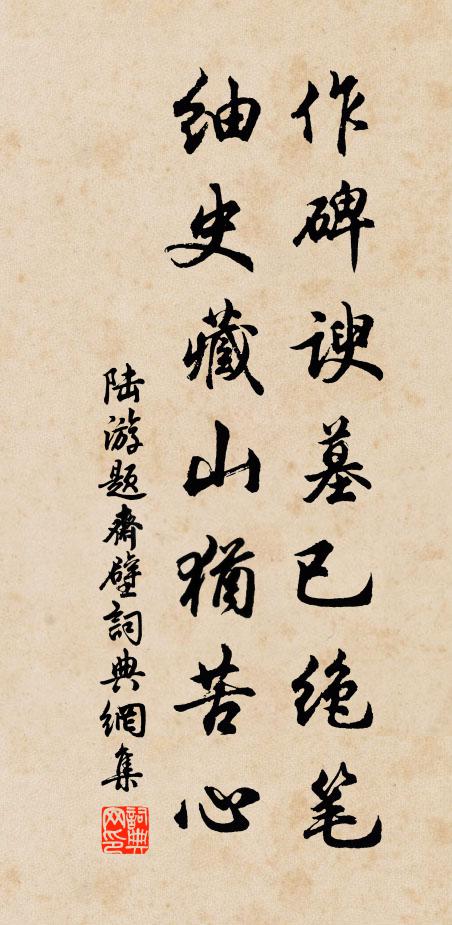 作碑谀墓已绝笔
䌷史藏山猶苦心
陆游题齋壁詞典網集
詞典网印